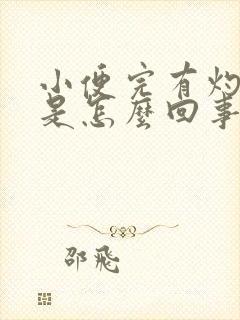 小便完有灼
是怎麼回事
邵飛